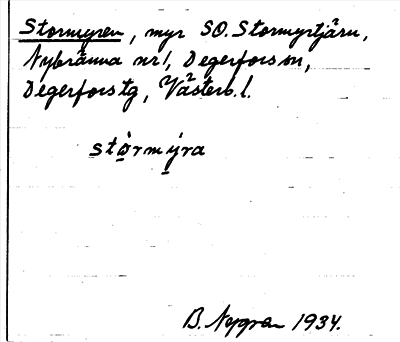 Stormyren, myr SO. Stormyrtjärn,
Nybränna nr 1, Degerfors sn,
Degerfors tg, Västerb. l.
stòrmýra
B. Nygren 1934.